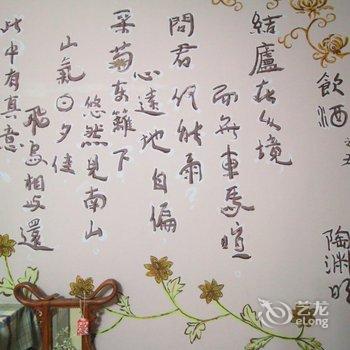 飲酒 之五
陶渊明
結廬在人境
而無車馬喧
問君何能爾
心遠地自偏
采菊东籬下
悠然见南山
山氣日夕佳
飛鳥相与還
此中有真意
艺龙
eLong.com